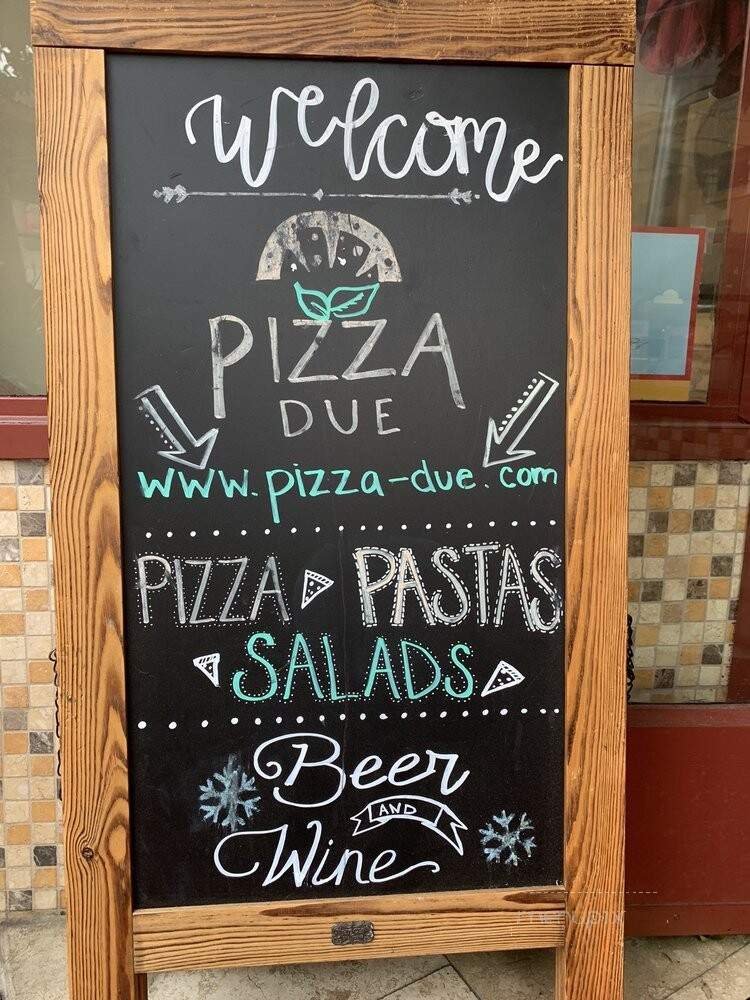 Welcome
PIZZA
DUE
www.pizza-due.com
PIZZA PASTAS
SALADS
Beer
AND
Wine